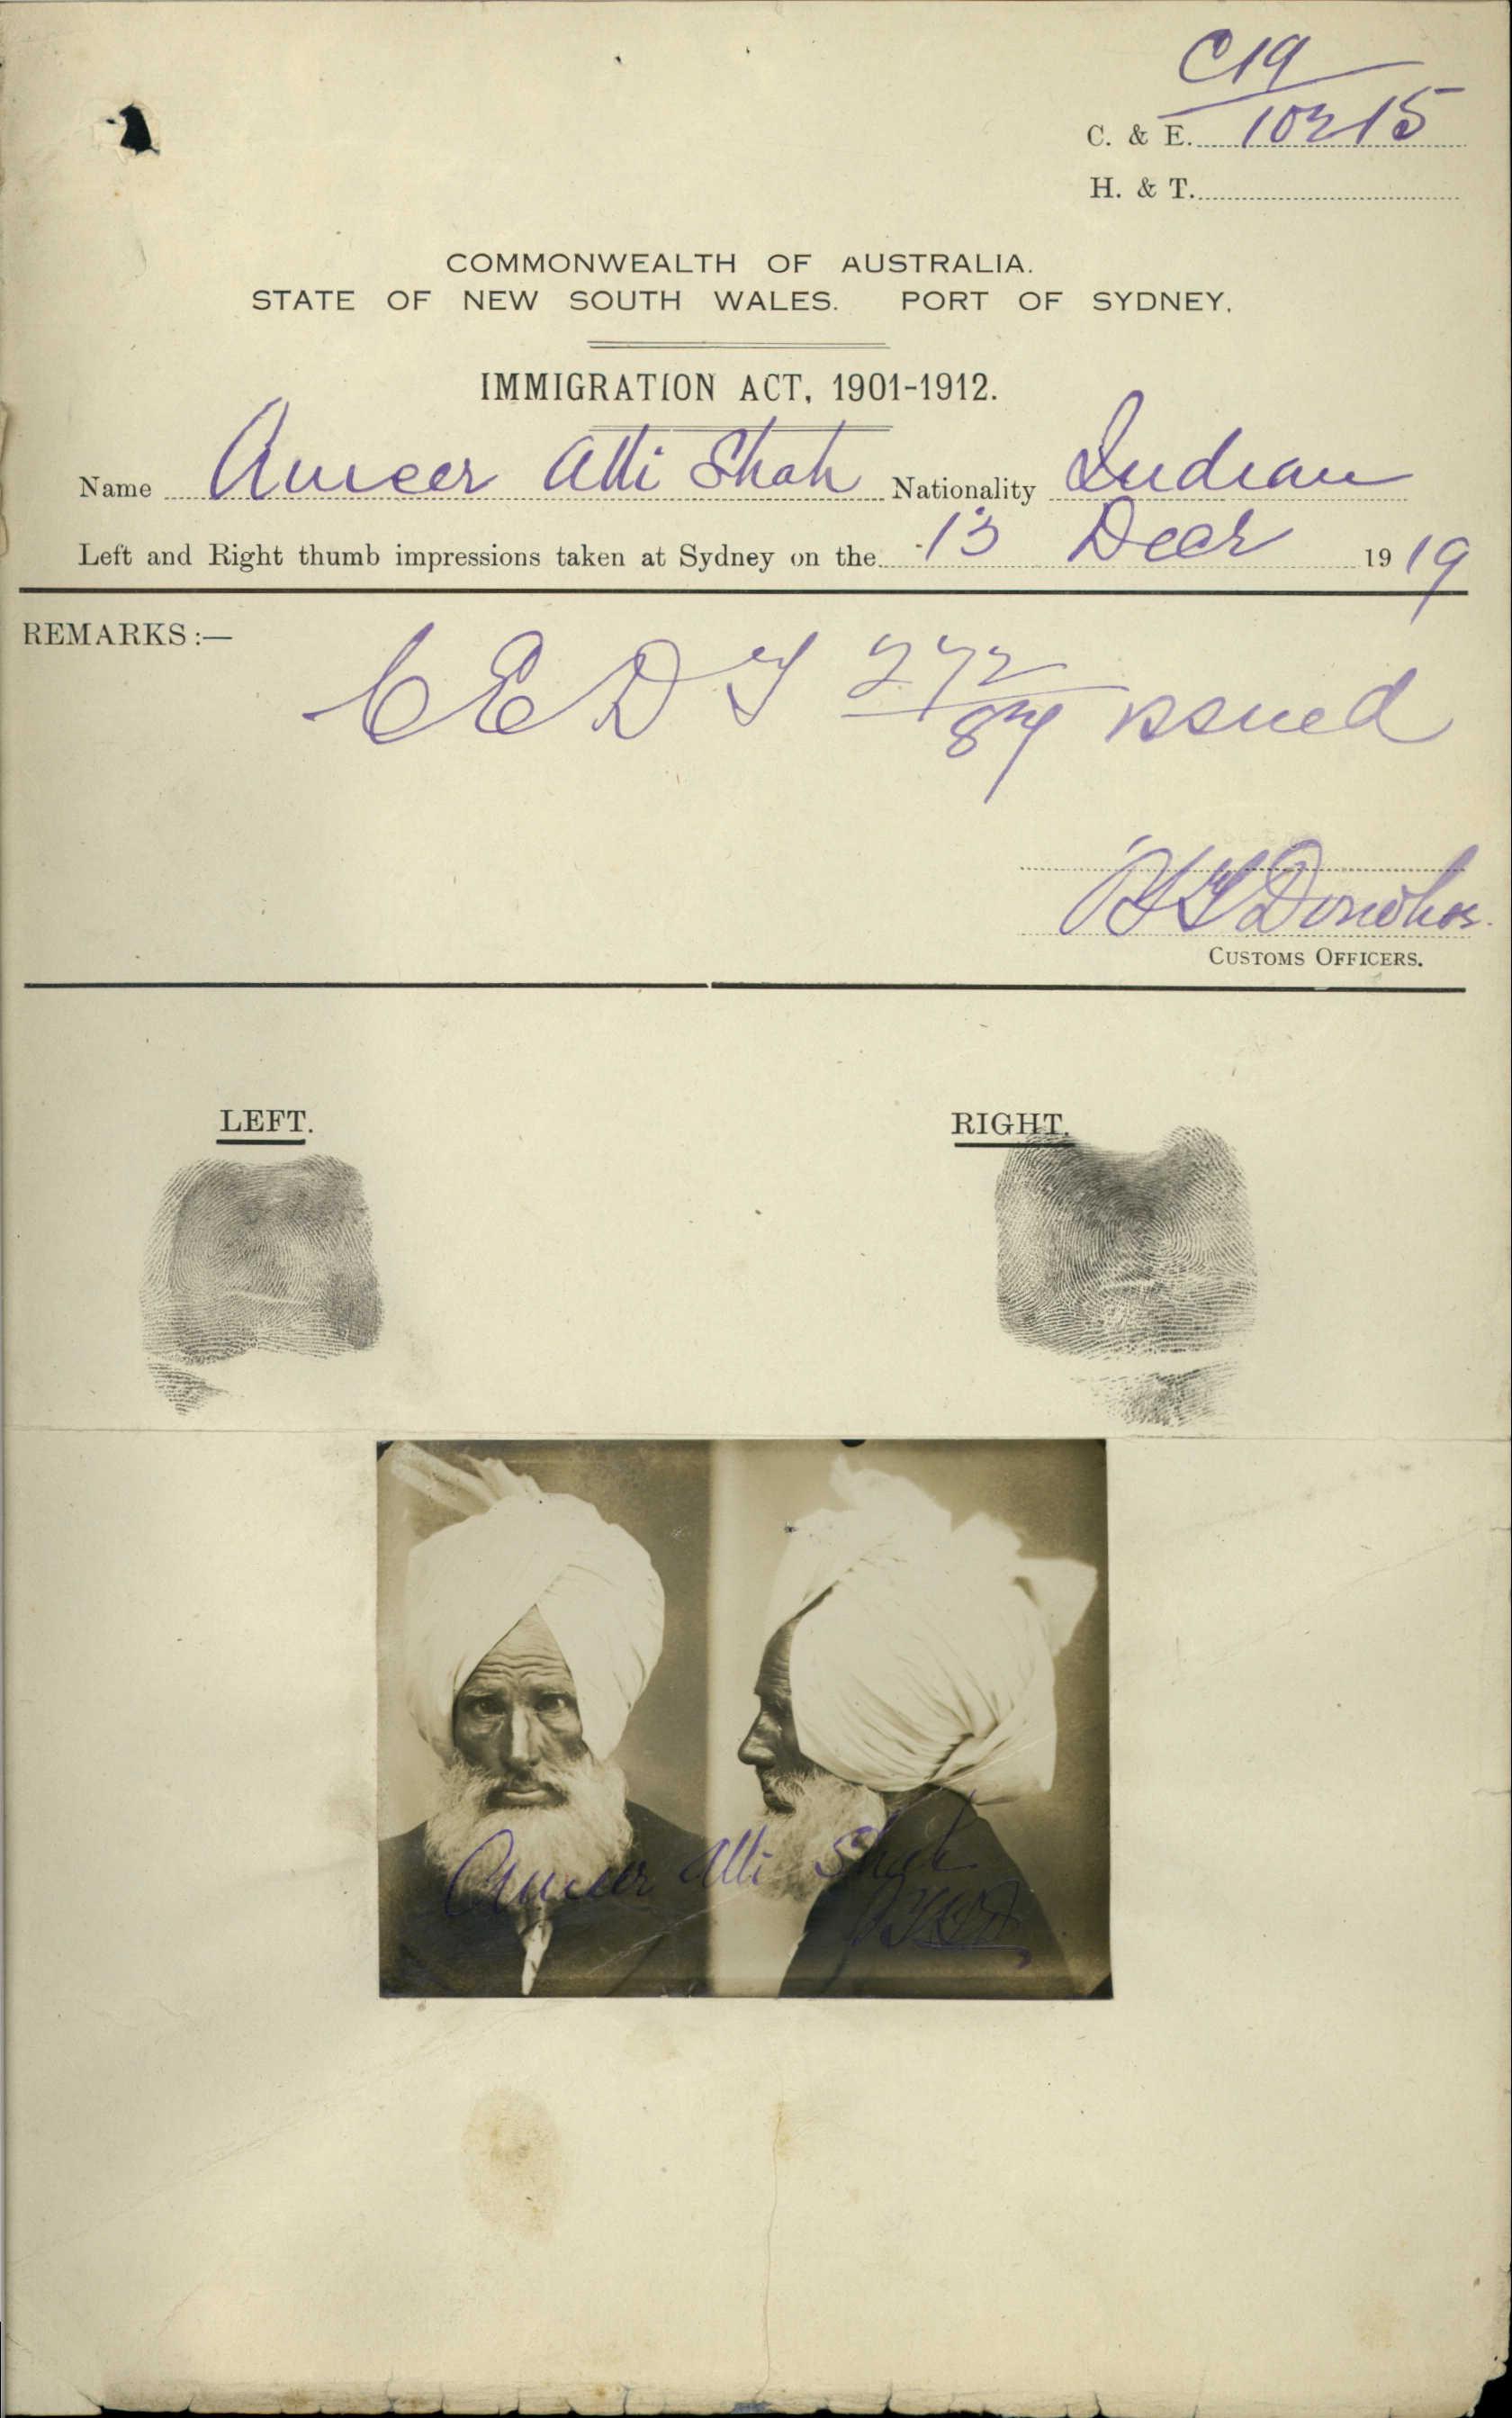 C19
C. & E. 10215
H. & T.
COMMONWEALTH OF AUSTRALIA.
STATE OF NEW SOUTH WALES. PORT OF SYDNEY.
IMMIGRATION ACT, 1901-1912.
Name Ameer Alli Shah Nationality Indian
Left and Right thumb impressions taken at Sydney on the 13 Decr 1919
REMARKS :—
CEDT issued
Donohoe
CUSTOMS OFFICERS.
LEFT. RIGHT.
Ameer Alli Shah